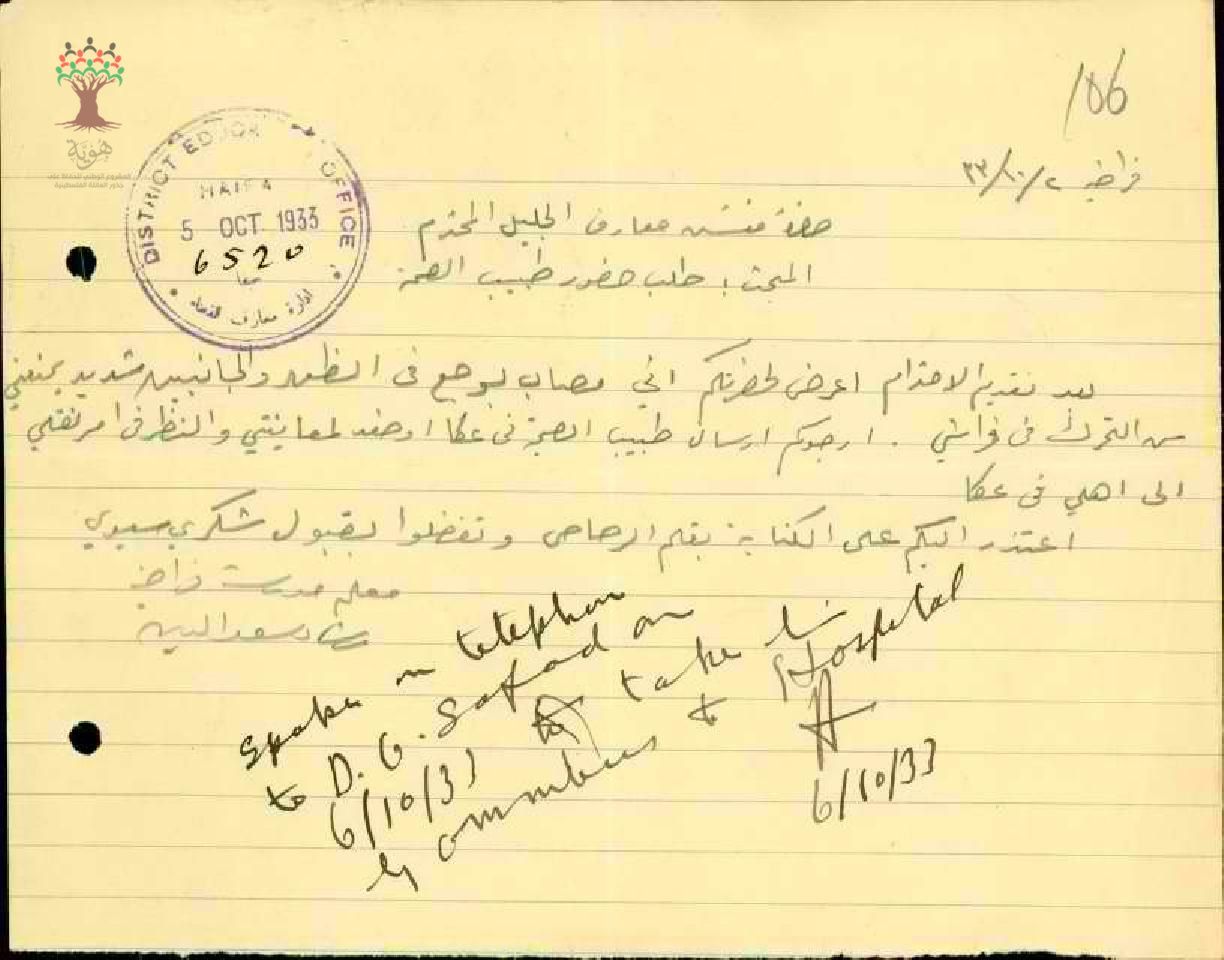 106
فراضية ٢/١٠/٣٣
حضرة مفتش معارف الجليل المحترم
المبحث : طلب حضور طبيب الصحة
بعد تقديم الاحترام اعرض لحضرتكم اني مصاب بوجع في الظهر والجانبين شديد يمنعني
من التحرك في فراشي . ارجوكم ارسال طبيب الصحة في عكا او صفد لمعاينتي والنظر في امر نقلي
الى اهلي في عكا
اعتذر اليكم على الكتابة بقلم الرصاص وتفضلوا بقبول شكري سيدي
معلم مدرسة فراضية
رشاد سعد الدين
DISTRICT OFFICE
HAIFA
5 OCT 1933
6520
ادارة معارف لواء
هوية
spoke on telephone
to D. O. Safad on
6/10/33 to take him
by omnibus to Hospital
6/10/33